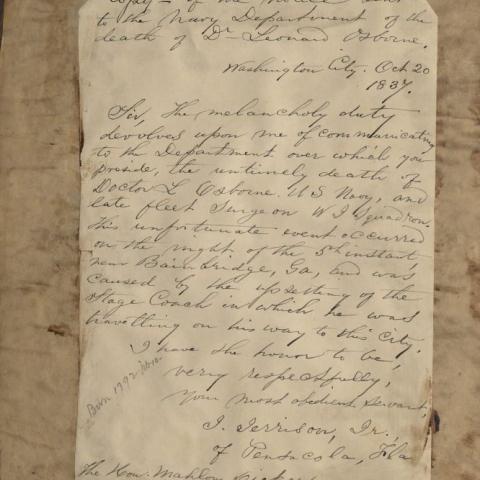 Copy of the notice sent
to the Navy Department of the
death of Dr Leonard Osborne.
Washington City. Oct 20
1837.
Sir, The melancholy duty
devolves upon me of communicating
to the Department over which you
preside, the untimely death of
Doctor L Osborne. U S Navy, and
late fleet Surgeon W I Squadron.
This unfortunate event occurred
on the night of the 5th instant,
near Bainbridge, Ga, and was
caused by the upsetting of the
Stage Coach in which he was
travelling on his way to this City.
I have the honor to be,
very respectfully,
Your most obedient servant,
J. Jerrison, Jr.,
of Pensacola, Fla
Born 1792
The Hon. Mahlon